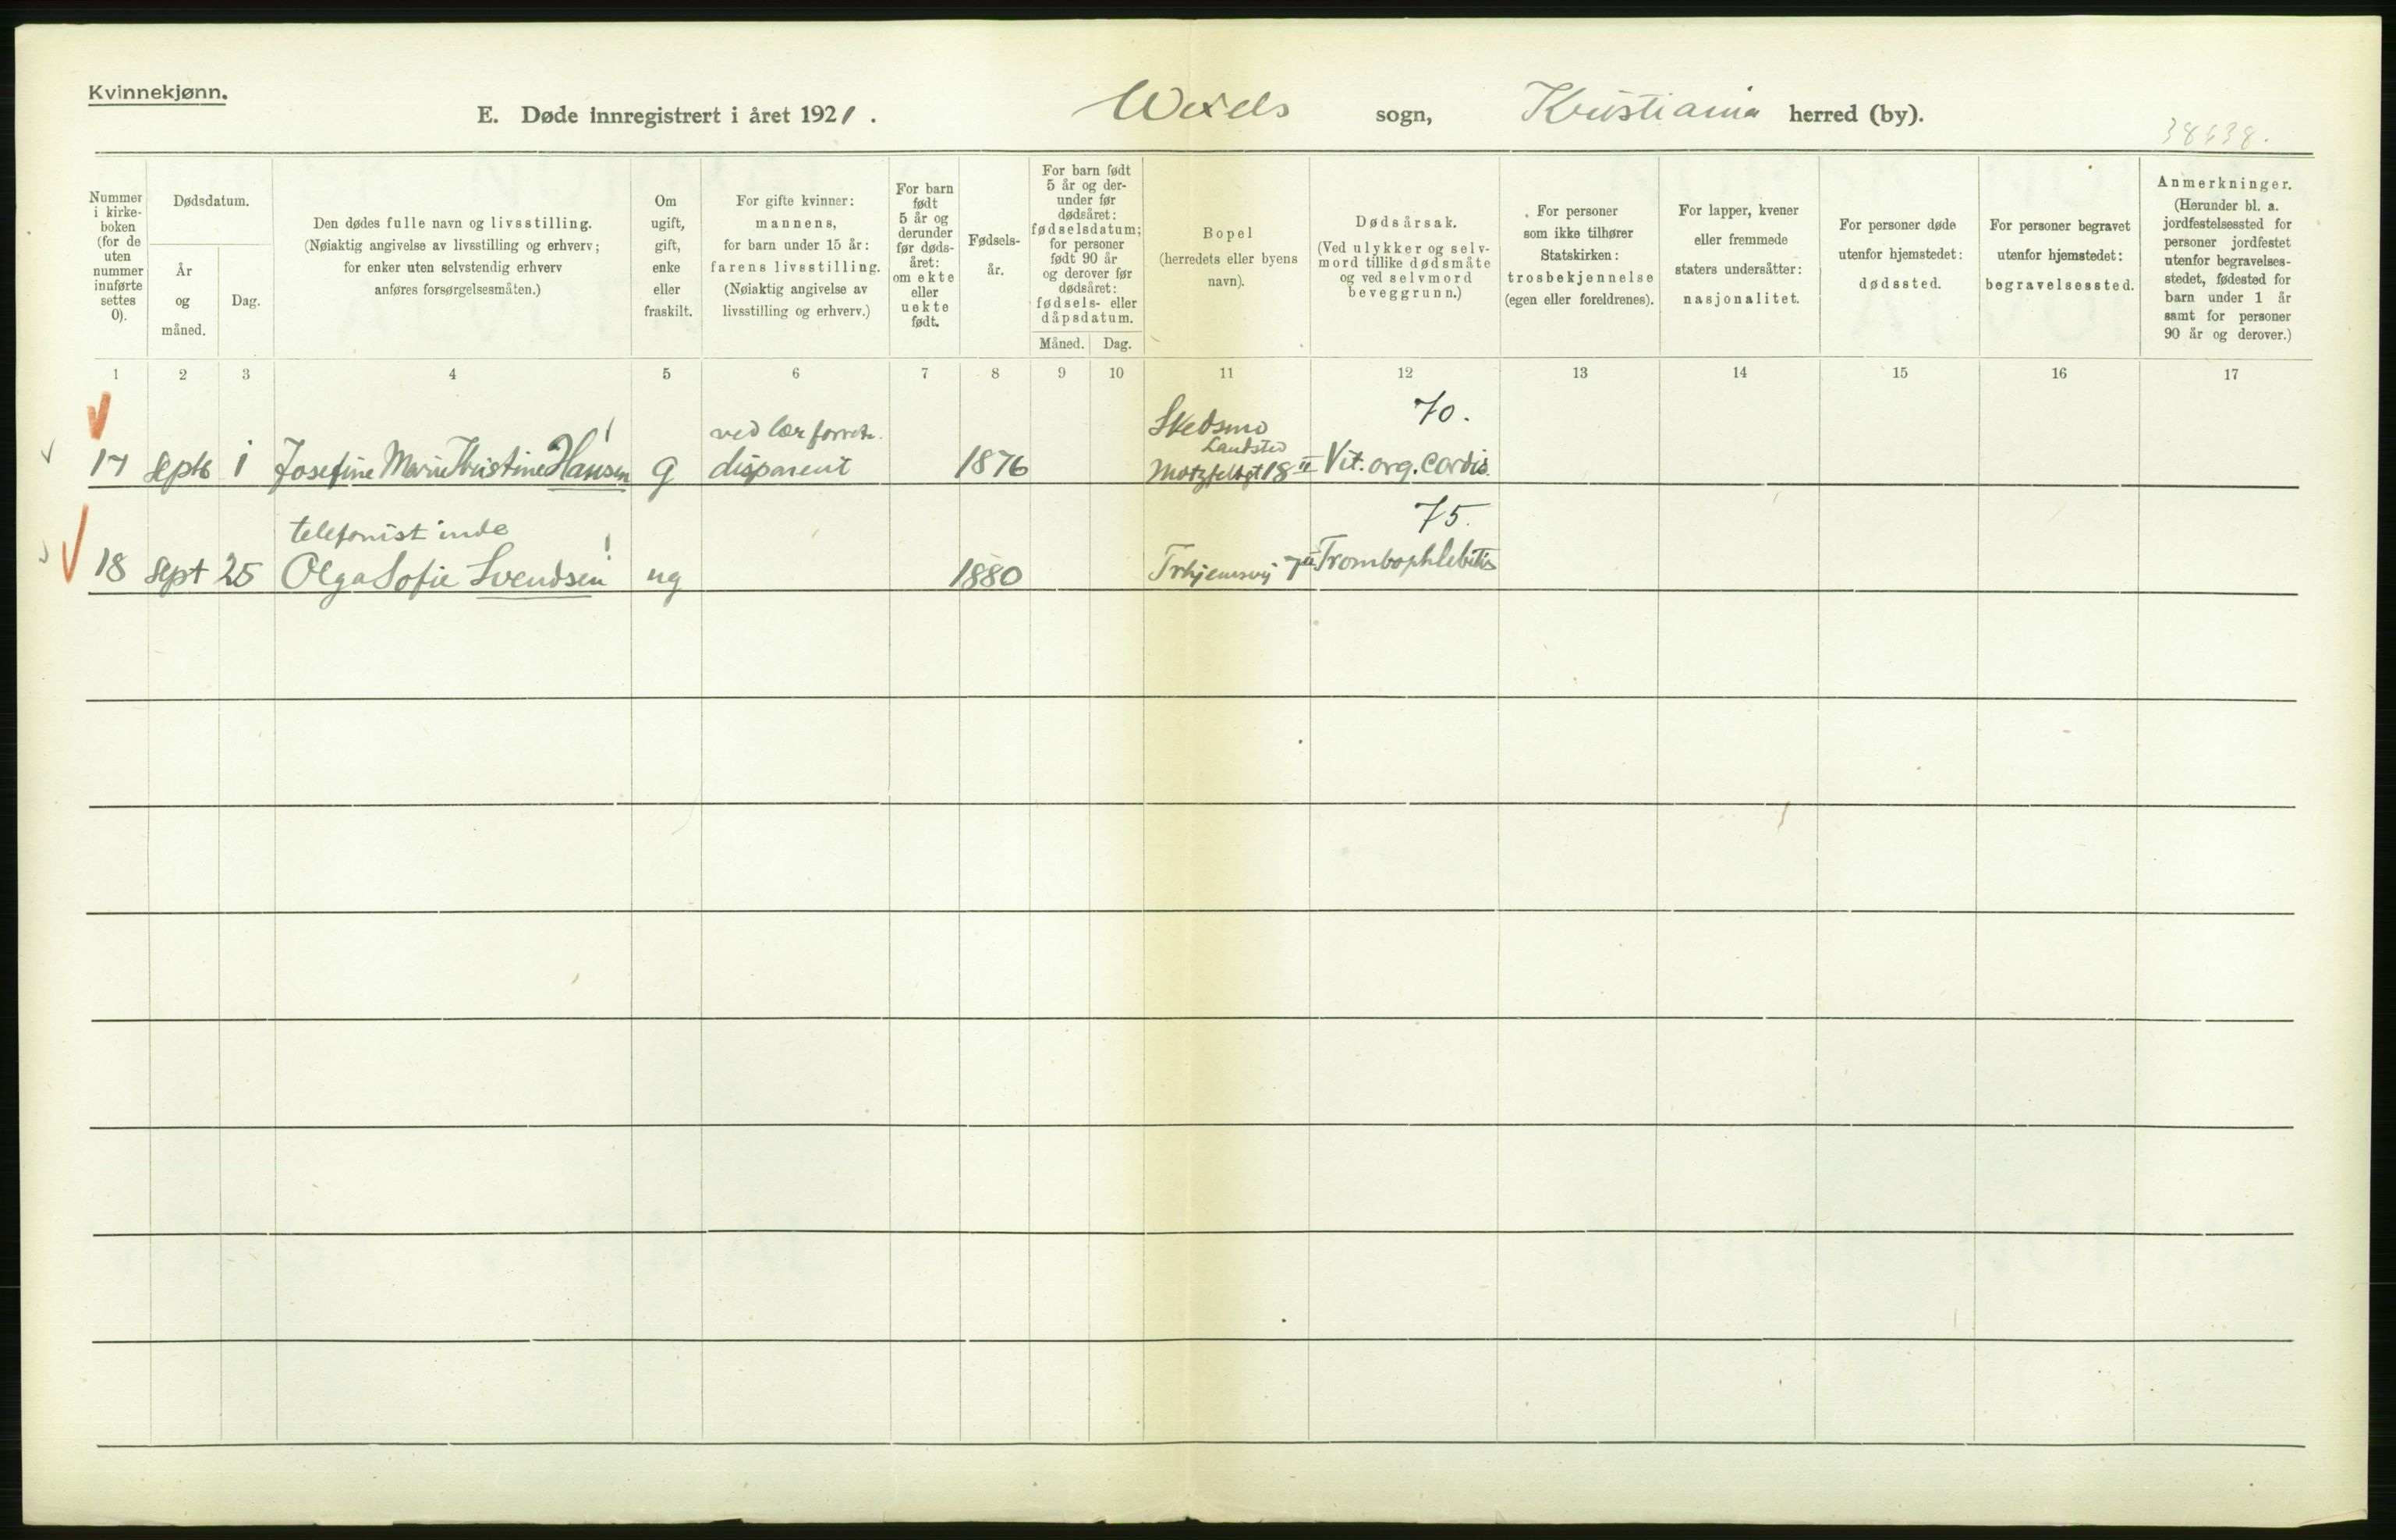 Kvinnekjønn.
E. Døde innregistrert i året 1921. Wexels sogn, Kristiania herred (by).
Nummer i kirke-boken (for de uten nummer innførte settes 0).
Dødsdatum.
År og måned.
Dag.
Den dødes fulle navn og livsstilling.
(Nøiaktig angivelse av livsstilling og erhverv;
for enker uten selvstendig erhverv
anføres forsørgelsesmåten.)
Om
ugift,
gift,
enke
eller
fraskilt.
For gifte kvinner:
mannens,
for barn under 15 år:
farens livsstilling.
(Nøiaktig angivelse av
livsstilling og erhverv.)
For barn
født
5 år og
derunder
før døds-
året:
om ekte
eller
uekte
født.
Fødsels-
år.
For barn født
5 år og der-
under før
dødsåret:
fødselsdatum;
for personer
født 90 år
og derover før
dødsåret:
fødsels- eller
dåpsdatum.
Måned. Dag.
Bopel
(herredets eller byens
navn).
Dødsårsak.
(Ved ulykker og selv-
mord tillike dødsmåte
og ved selvmord
beveggrunn.)
For personer
som ikke tilhører
Statskirken:
trosbekjennelse
(egen eller foreldrenes).
For lapper, kvener
eller fremmede
staters undersåtter:
nasjonalitet.
For personer døde
utenfor hjemstedet:
dødssted.
For personer begravet
utenfor hjemstedet:
begravelsessted.
Anmerkninger.
(Herunder bl. a.
jordfestelsessted for
personer jordfestet
utenfor begravelses-
stedet, fødested for
barn under 1 år
samt for personer
90 år og derover.)
1 2 3 4 5 6 7 8 9 10 11 12 13 14 15 16 17
ved lær forretn. Skedsmo 70.
Landsted
17 Septb 1 Josefine Marie Kristine Hansen g disponent 1876 Motzfeldtgt 18 II Vit. org. cordis.
telefonistinde 75.
18 Sept 25 Olga Sofie Svendsen ug 1880 Trhjemsvj 7 II Trombophlebitis